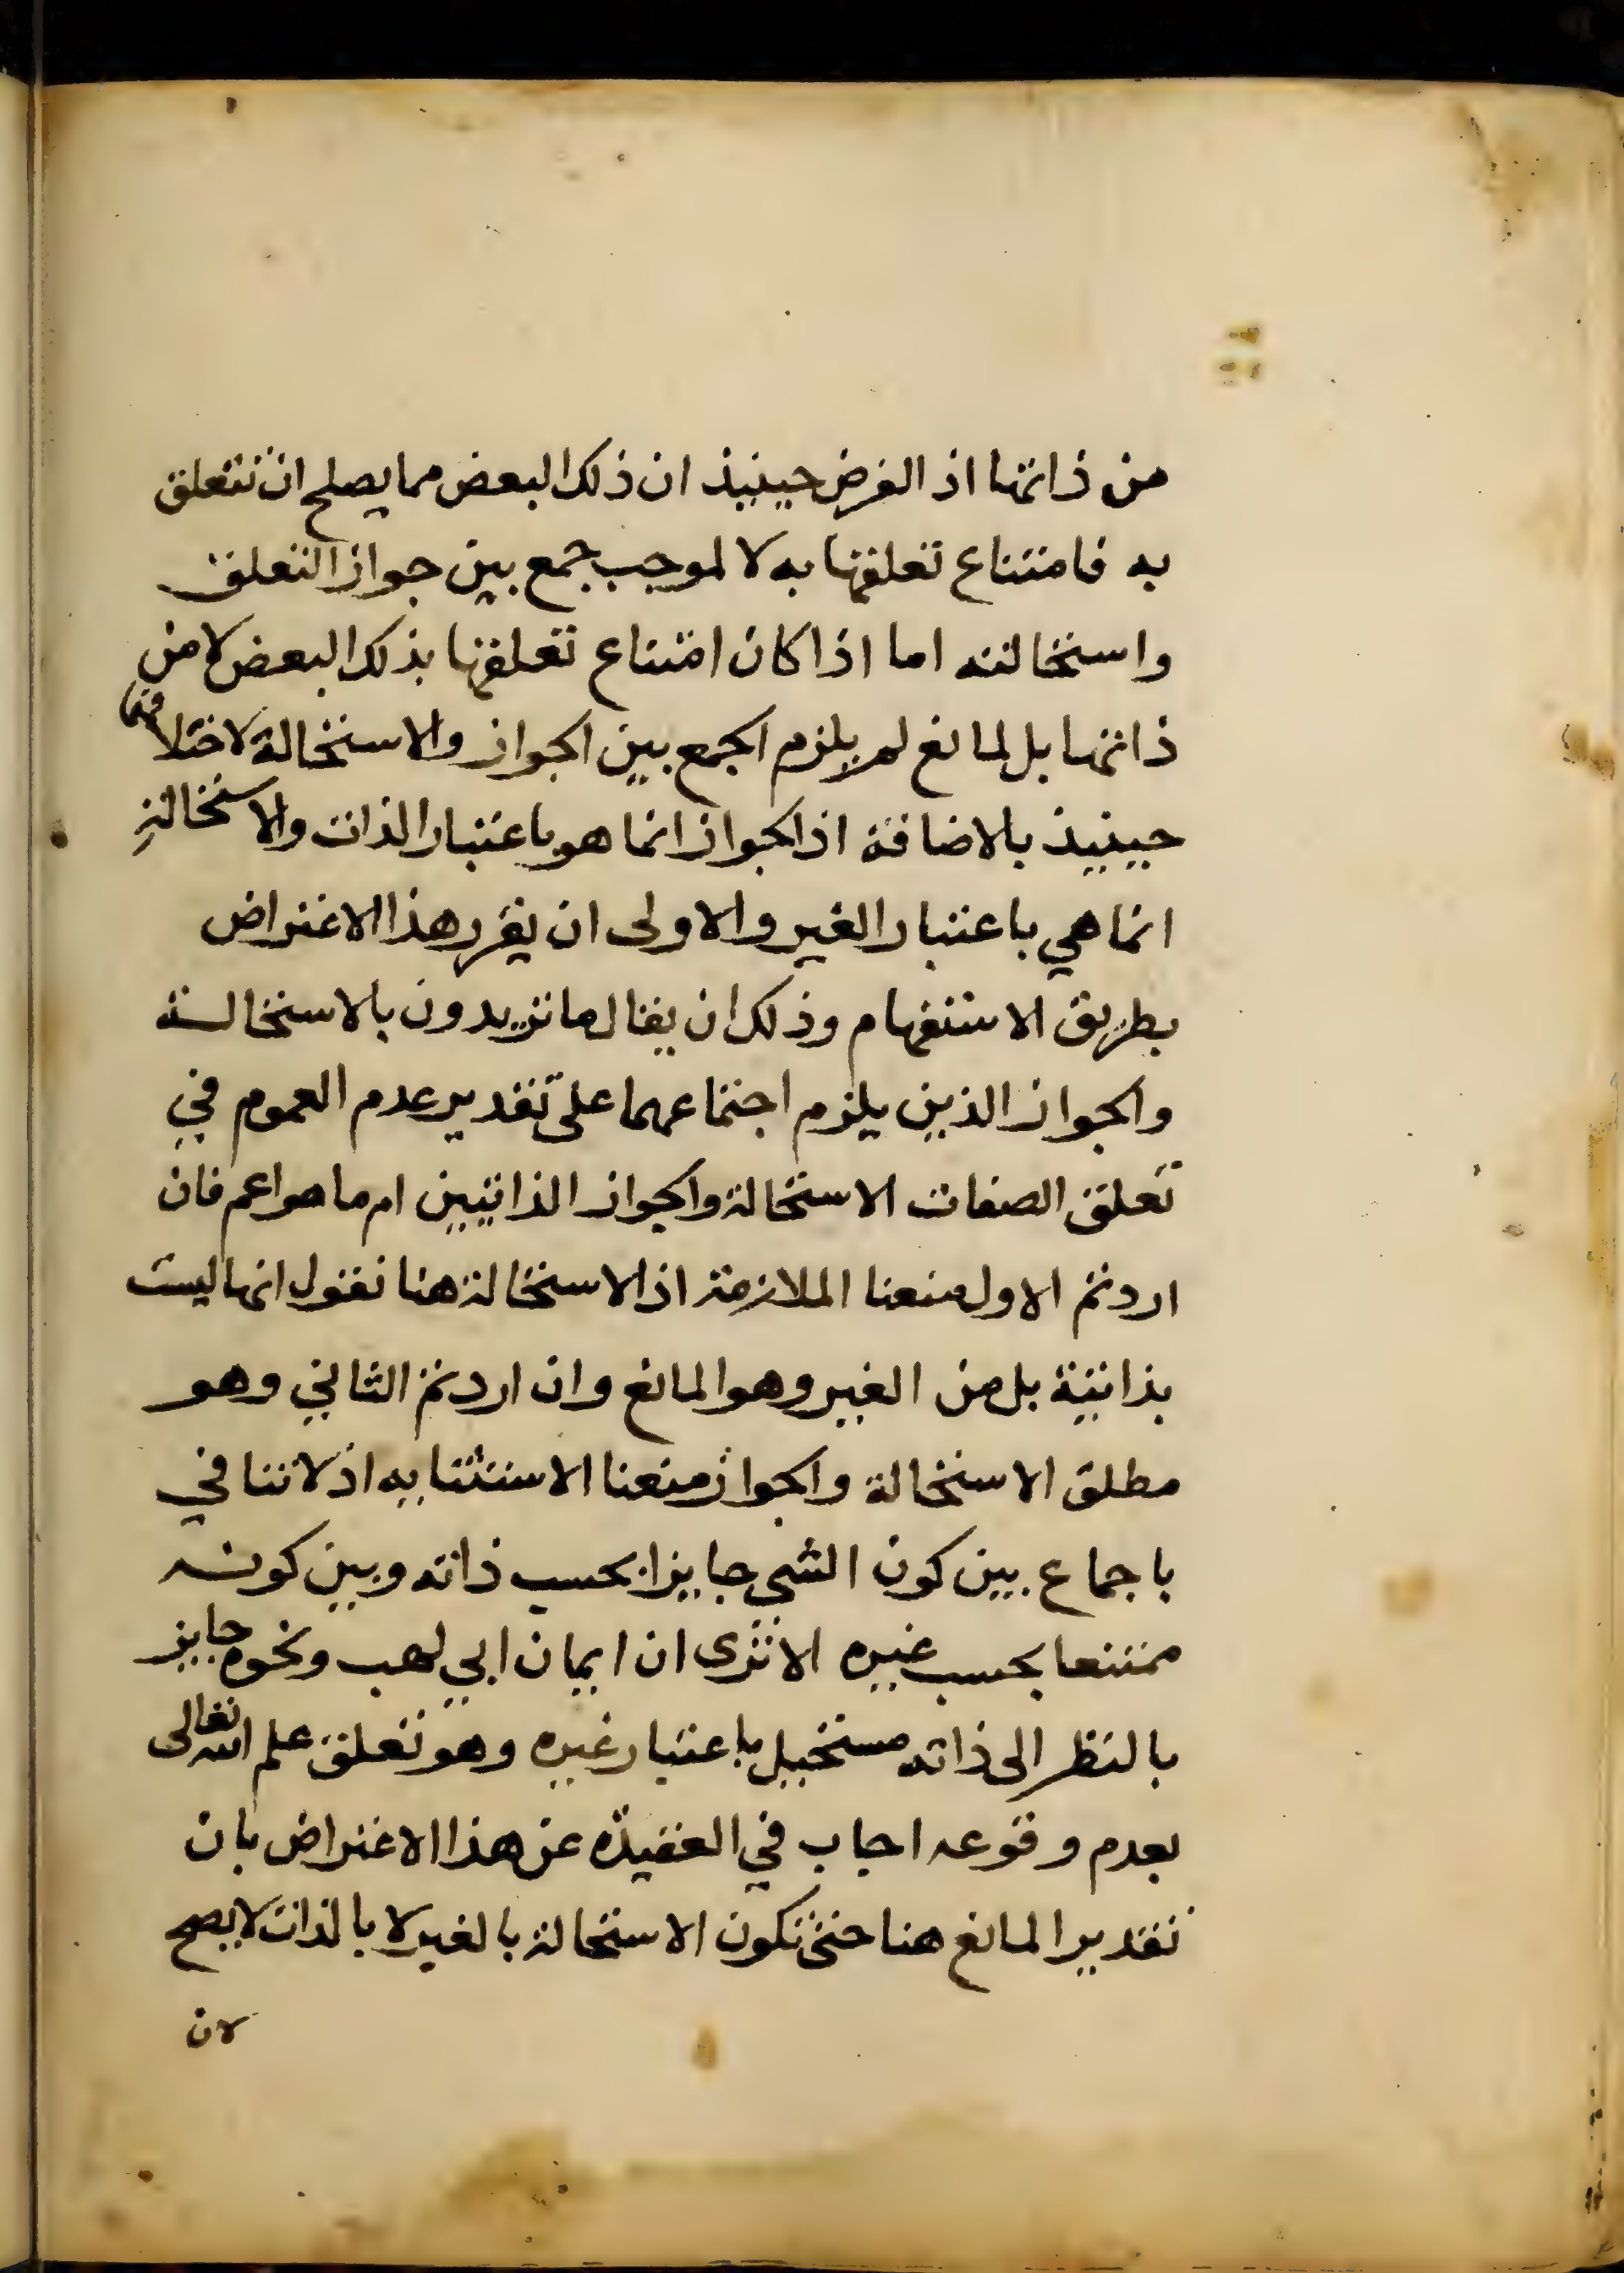 من ذاتها اذ الفرض حينيذ ان ذلك البعض مما يصلح ان تتعلق
به فامتناع تعلقها به لا لموجب جمع بين جواز التعلق
واستحالته اما اذا كان امتناع تعلقها بذلك البعض لا من
ذاتها بل لمانع لم يلزم الجمع بين الجواز والاستحالة لاختلافهما
حينيذ بالاضافة اذ الجواز انما هو باعتبار الذات والاستحالة
انما هي باعتبار الغير والاولى ان يقرر هذا الاعتراض
بطريق الاستفهام وذلك ان يقال ما تريدون بالاستحالة
والجواز الذين يلزم اجتماعهما على تقدير عدم العموم في
تعلق الصفات الاستحالة والجواز الذاتيين ام ما هو اعم فان
اردتم الاول منعنا الملازمة اذ الاستحالة هنا نقول انها ليست
بذاتية بل من الغير وهو المانع وان اردتم الثاني وهو
مطلق الاستحالة والجواز منعنا الاستثنايه اذ لا تنافي
باجماع بين كون الشي جايزا بحسب ذاته وبين كونه
ممتنعا بحسب غيره الا ترى ان ايمان ابي لهب ونحوه جايز
بالنظر الى ذاته مستحيل باعتبار غيره وهو تعلق علم الله تعالى
بعدم وقوعه اجاب في العقيدة عن هذا الاعتراض بان
تقدير المانع هنا حتى تكون الاستحالة بالغير لا بالذات لا يصح
لان